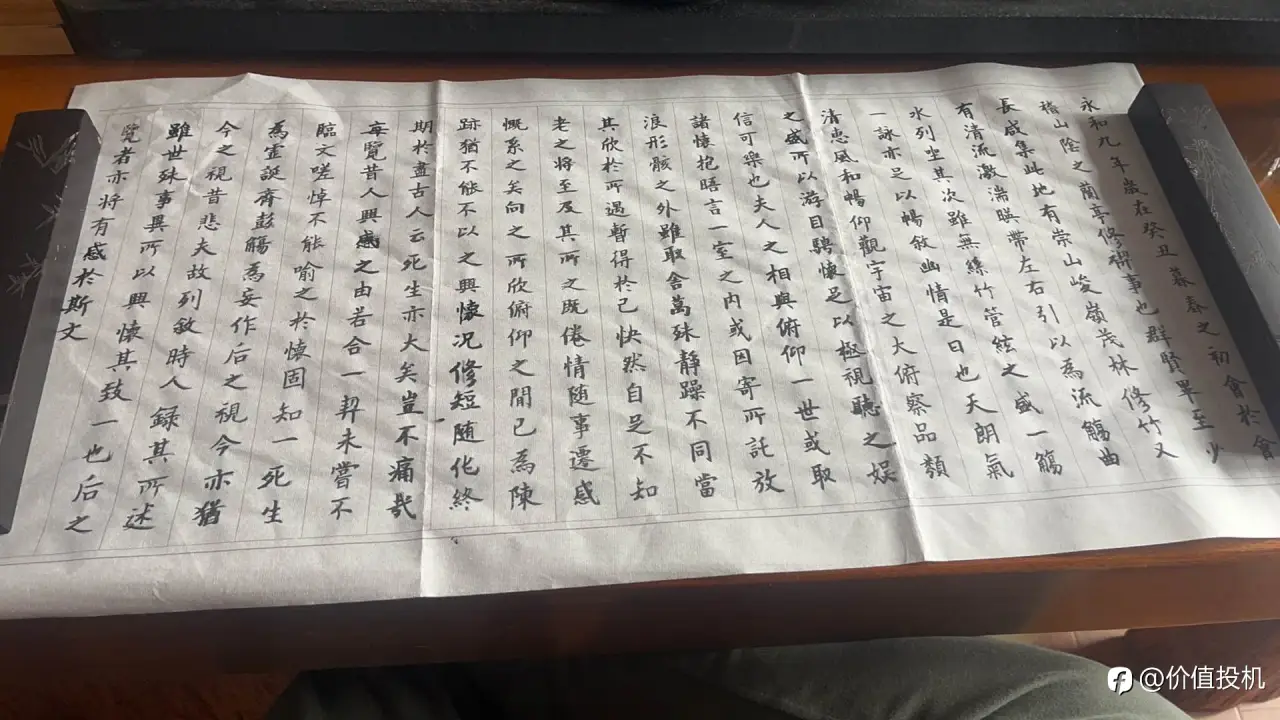 永和九年歲在癸丑暮春之初會於會
稽山陰之蘭亭修稧事也群賢畢至少
長咸集此地有崇山峻嶺茂林修竹又
有清流激湍暎帶左右引以為流觴曲
水列坐其次雖無絲竹管絃之盛一觴
一詠亦足以暢敘幽情是日也天朗氣
清惠風和暢仰觀宇宙之大俯察品類
之盛所以游目騁懷足以極視聽之娱
信可樂也夫人之相與俯仰一世或取
諸懷抱晤言一室之内或因寄所託放
浪形骸之外雖取舍萬殊静躁不同當
其欣於所遇暫得於己快然自足不知
老之将至及其所之既倦情随事遷感
慨系之矣向之所欣俯仰之間已為陳
跡猶不能不以之興懷况修短随化終
期於盡古人云死生亦大矣豈不痛哉
每覽昔人興感之由若合一契未嘗不
臨文嗟悼不能喻之於懷固知一死生
為虚誕齊彭殤為妄作后之視今亦猶
今之視昔悲夫故列敘時人録其所述
雖世殊事異所以興懷其致一也后之
覽者亦将有感於斯文
@价值投机